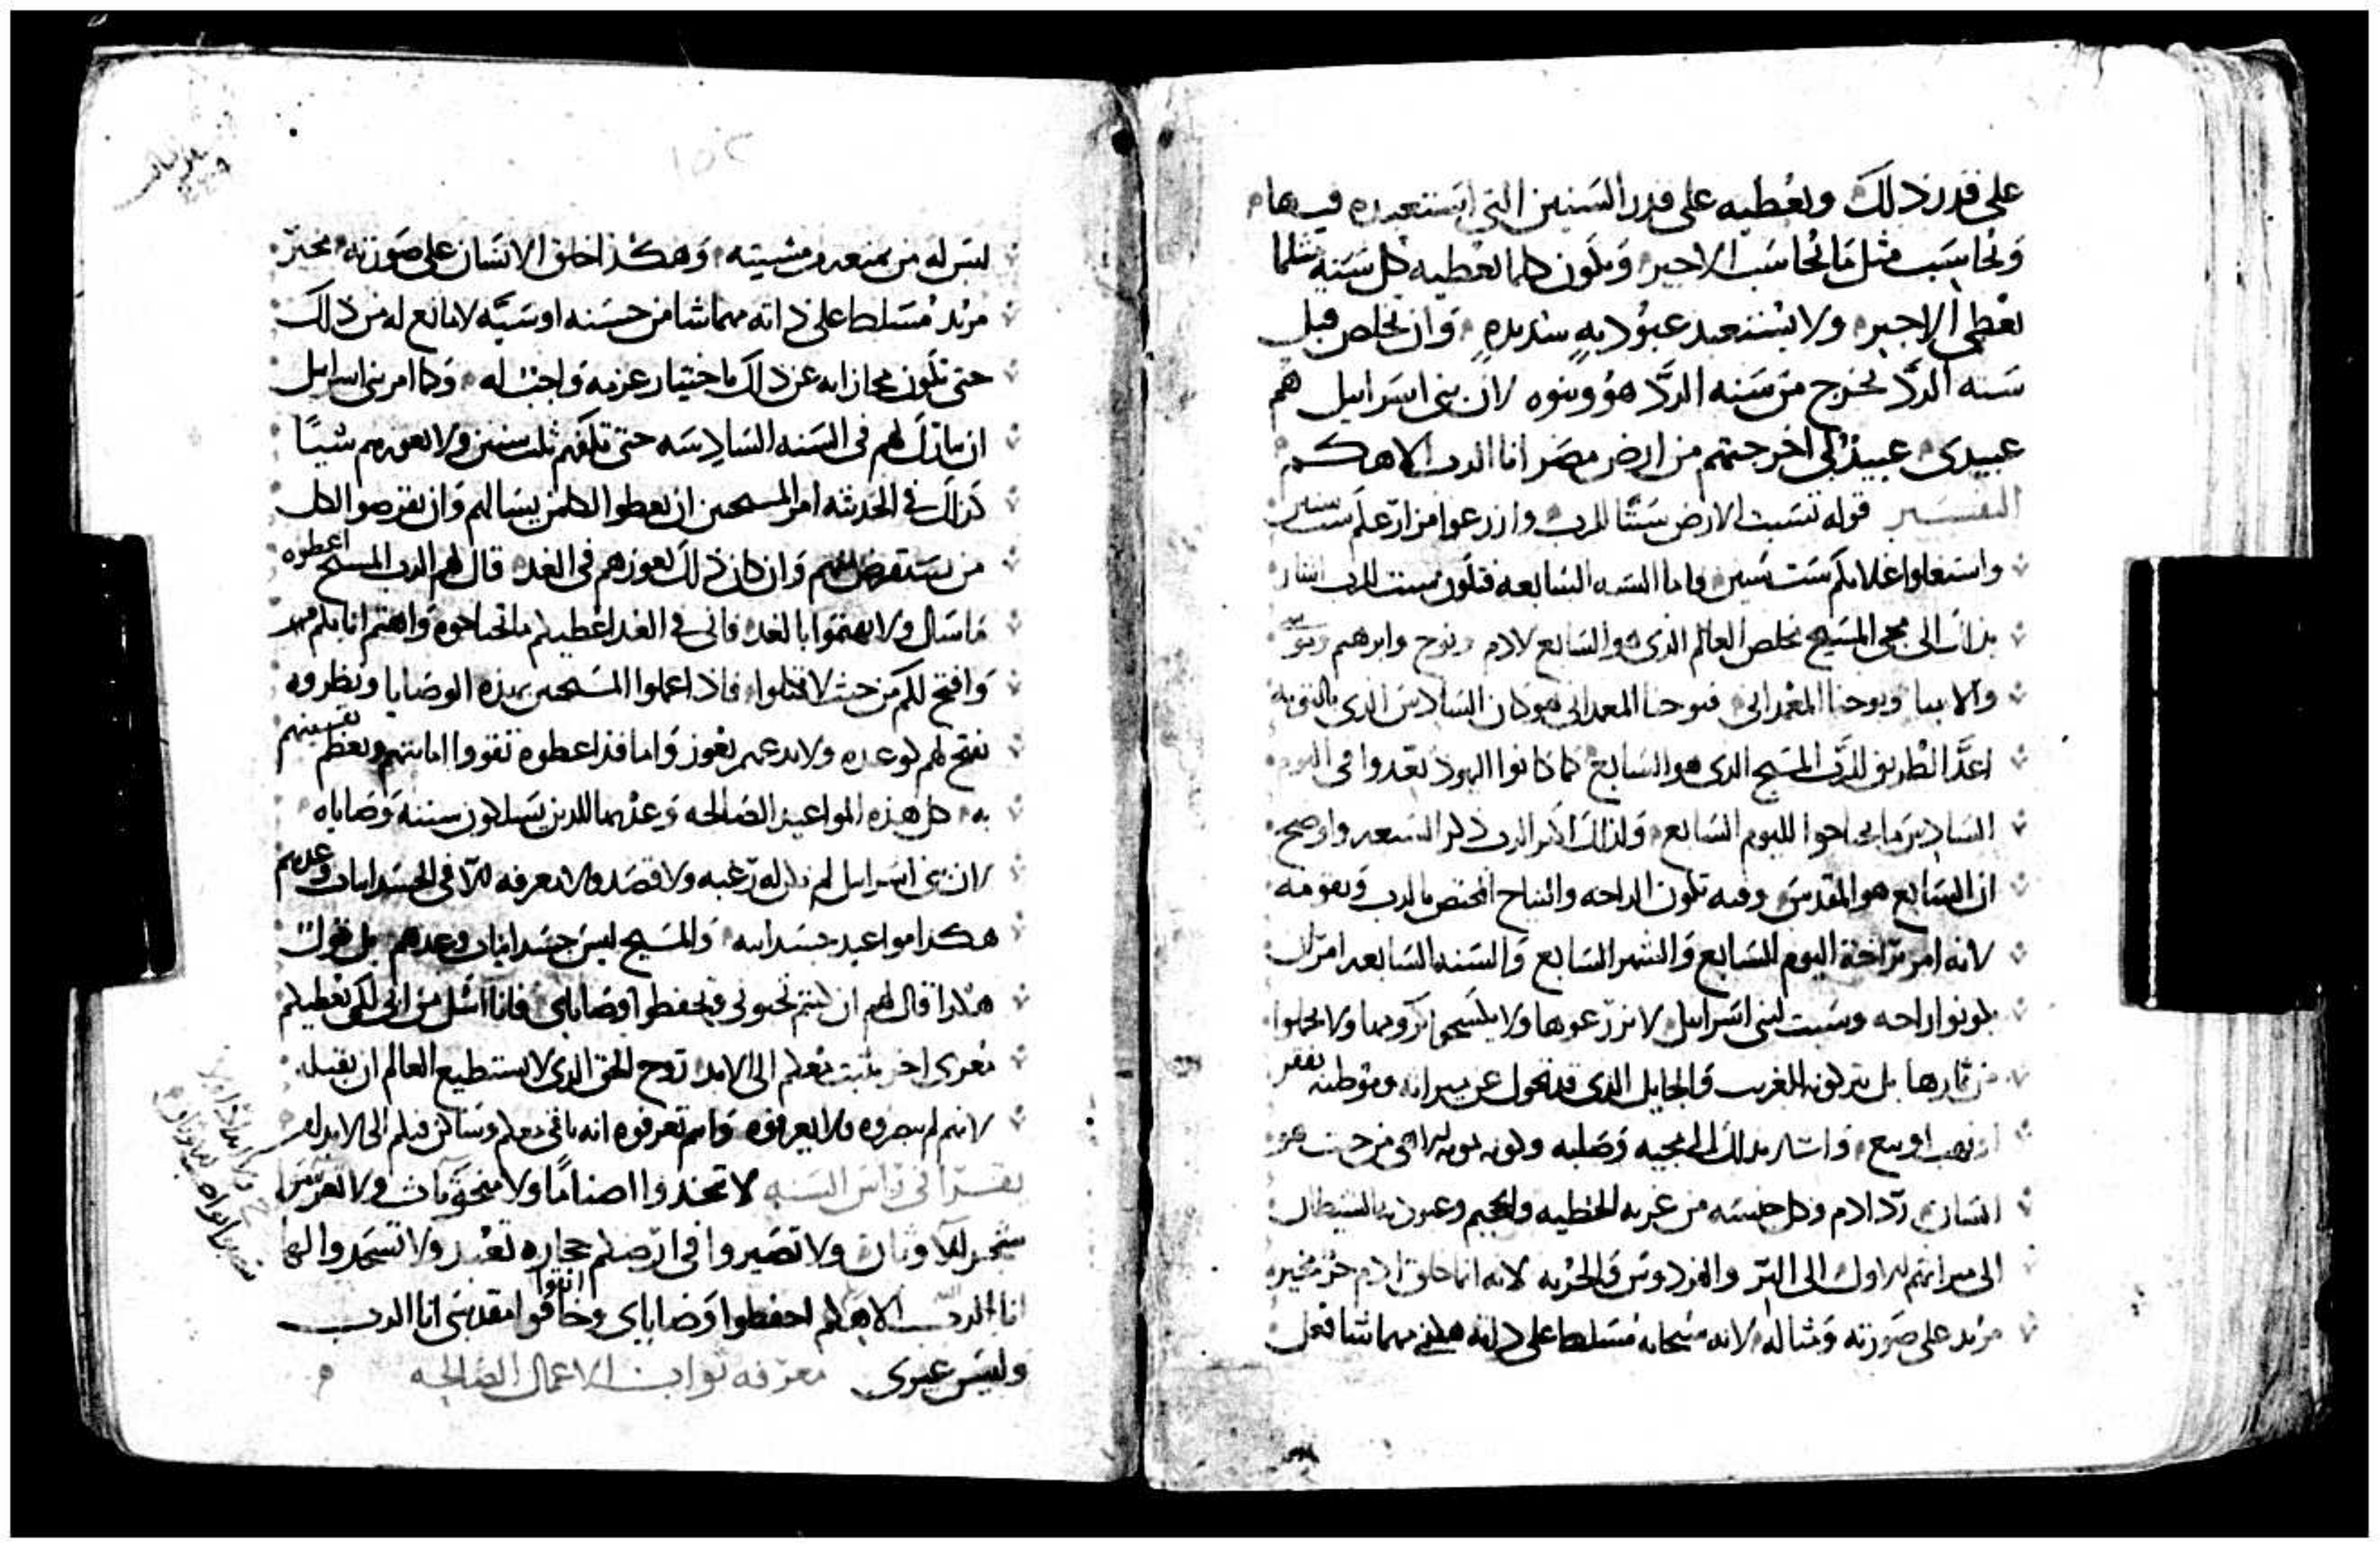 على قدر ذلك وتعطيه على قدر السنين التى استعبده فيها
وتحاسب مثل ما تحاسب الاجير وتكون كلما تعطيه كل سنه مثلما
تعطى الاجير ولا يستعبد عبوديه شديده وان تخلص قبل
سنه الردّ يخرج من سنه الردّ هو وبنوه لان بنى اسراييل هم
عبيدى عبيدى الى اخرجتهم من ارض مصر انا الرب الاهكم
التفسير قوله تسبت الارض سبتًا للرب وازرعوا مزارعكم ست سنين
واستغلوا غلاتكم ست سنين واما السنه السابعه فتكون سبت للرب اشار
بذلك الى مجى المسيح مخلص العالم الذى هو السابع لادم ونوح وابرهيم
والانبيا ويوحنا المعمدانى فيوحنا المعمدانى هو كان السادس الذى بالتوبه
اعدَّ الطريق للرب المسيح الذى هو السابع كما كانوا اليهود يعدوا فى اليوم
السادس ما يحتاجوا لليوم السابع ولذلك اكثر الرب ذكر السبعه واوضح
ان السابع هو المقدس وفيه تكون الراحه والنياح المختص بالرب وبقومه
لانه امر براحة اليوم السابع والشهر السابع والسنه السابعه امر ان
يكونوا راحه وسبت لبنى اسراييل لا يزرعوها ولا يكسحوا كرومها ولا يحملوا
من ثمارها بل يتركونه للغريب والجايل الذى قد تحول عن ميراثه وموطنه بفقر
او نهب او بيع واشار بذلك الى مجيه وصلبه
انسان ردّ ادم وكل جنسه من غربه الخطيه والجحيم وعبوديه الشيطان
الى ميراثهم الاول الى البرّ والفردوس والحريه لانه انما خلق ادم حر مخير
مريد على صورته ومثاله لانه سبحانه مسلط على ذاته مهما شا فعل
ليس له من يمنعه من مشيته وهكذا خلق الانسان على صورته مخير
مريد مسلط على ذاته مهما شا من حسنه او سيَّه لا مانع له من ذلك
حتى تكون مجازاته عن ذلك باختيار عزمه واجبه له وكما امر بنى اسراييل
ان يبارك لهم فى السنه السادسه حتى تكفيهم ثلث سنين ولا يعوزهم شيًا
كذلك فى الحديثه امر المسيحين ان يعطوا لكلمن يسالهم وان يقرضوا لكل
من يستقرض منهم وان كان ذلك يعوزهم فى الغد قال لهم الرب المسيح اعطوه
ما سال ولا تهتموا بالغد فانى فى الغد اعطيكم ما تحتاجوه واهتم انا بكم
وافتح لكم من حيث لا تعلموا فاذا عملوا المسيحين بهذه الوصايا ونظروه
يفتح لهم كوعده ولا يدعهم يعوزوا ما قد اعطوه تقووا امانتهم ويعظم يقينهم
به كل هذه المواعيد الصالحه وعد بها للذين يسلكون سننه ووصاياه
لان بنى اسراييل لم يكن له رغبه ولا قصد ولا معرفه الا فى الجسدانيات وعدهم
هكذا مواعيد جسدانيه والمسيح ليس جسدانيات وعدهم بل يقول
هكذا قال لهم ان كنتم تحبونى وتحفظوا وصاياى فانا اسل من ابى لكى يعطيكم
معزى اخر يثبت معكم الى الابد روح الحق الذى لا يستطيع العالم ان يقبله
لانهم لم يبصروه ولا يعرفوه وانتم تعرفوه انه باقى معكم وساكن فيكم الى الابد
يقرا فى راس السنه لا تتخذوا اصنامًا ولا منحوتات ولا تغرسوا
شجر للاوثان ولا تصيروا فى ارضكم حجاره تعبد ولا تسجدوا لها
انا الرب الاهكم احفظوا وصاياى وخافوا اتقوا مقدسى انا الرب
وليس غيرى معرفه ثواب الاعمال الصالحه